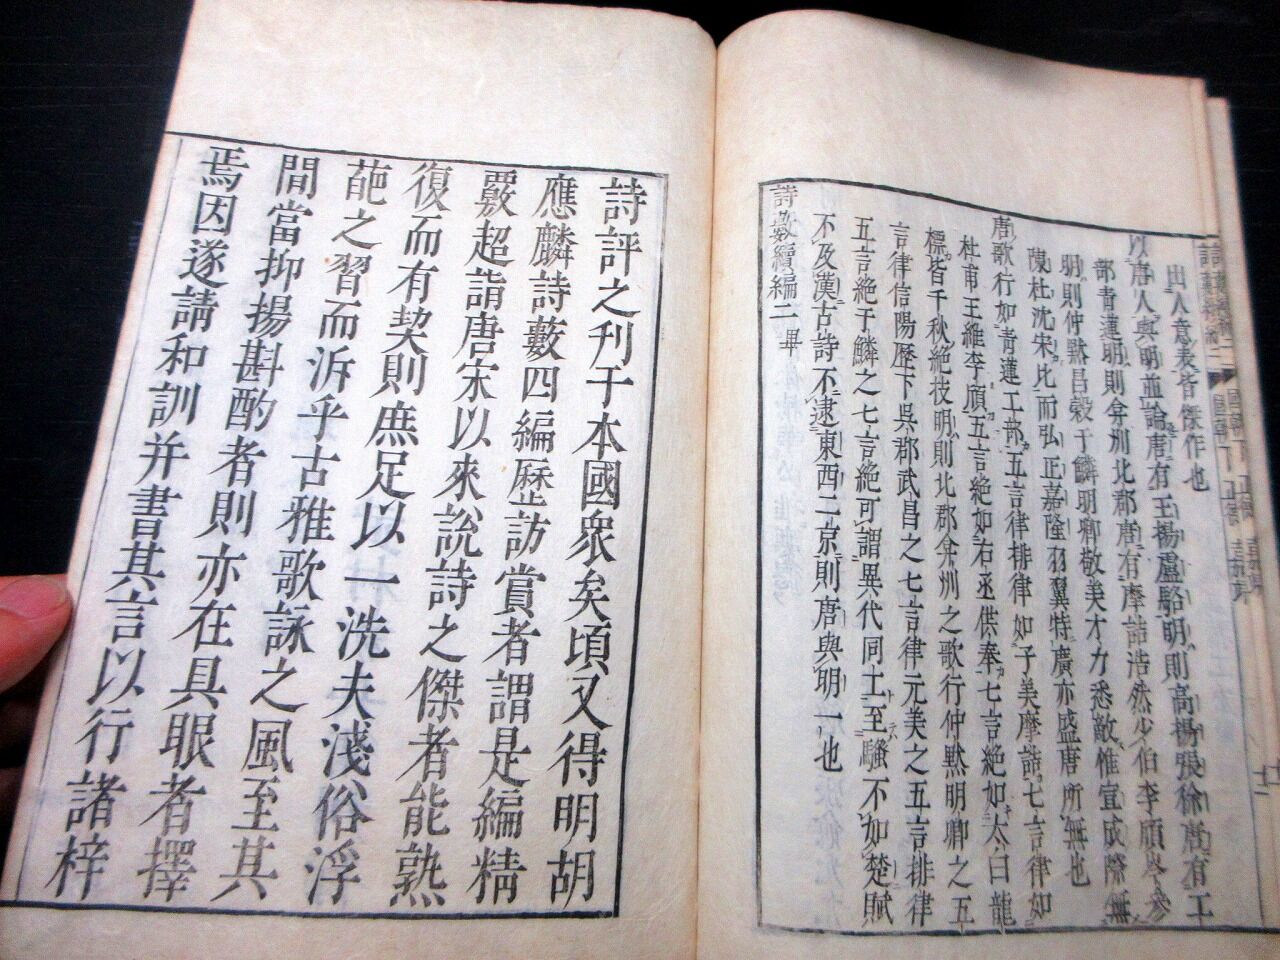 出人意表皆傑作也
以唐人與明並論唐有王楊盧駱明則高楊張徐唐有工
部青蓮明則弇州北郡唐有摩詰浩然少伯李頎岑參
明則仲默昌穀于鱗明卿敬美才力悉敵惟宣成際無
陳杜沈宋比而弘正嘉隆羽翼特廣亦盛唐所無也
唐歌行如青蓮工部五言律排律如子美摩詰七言律如
杜甫王維李頎五言絕如右丞供奉七言絕如太白龍
標皆千秋絕技明則北郡弇州之歌行仲默明卿之五
言律信陽歷下吳郡武昌之七言律元美之五言排律
五言絕于鱗之七言絕可謂異代同工至騷不如楚賦
不及漢古詩不逮東西二京則唐與明一也
詩藪續編二畢
詩評之刊于本國衆矣頃又得明胡
應麟詩藪四編歷訪賞者謂是編精
覈超詣唐宋以來說詩之傑者能熟
復而有契則庶足以一洗夫淺俗浮
葩之習而泝乎古雅歌詠之風至其
間當抑揚斟酌者則亦在具眼者擇
焉因遂請和訓并書其言以行諸梓